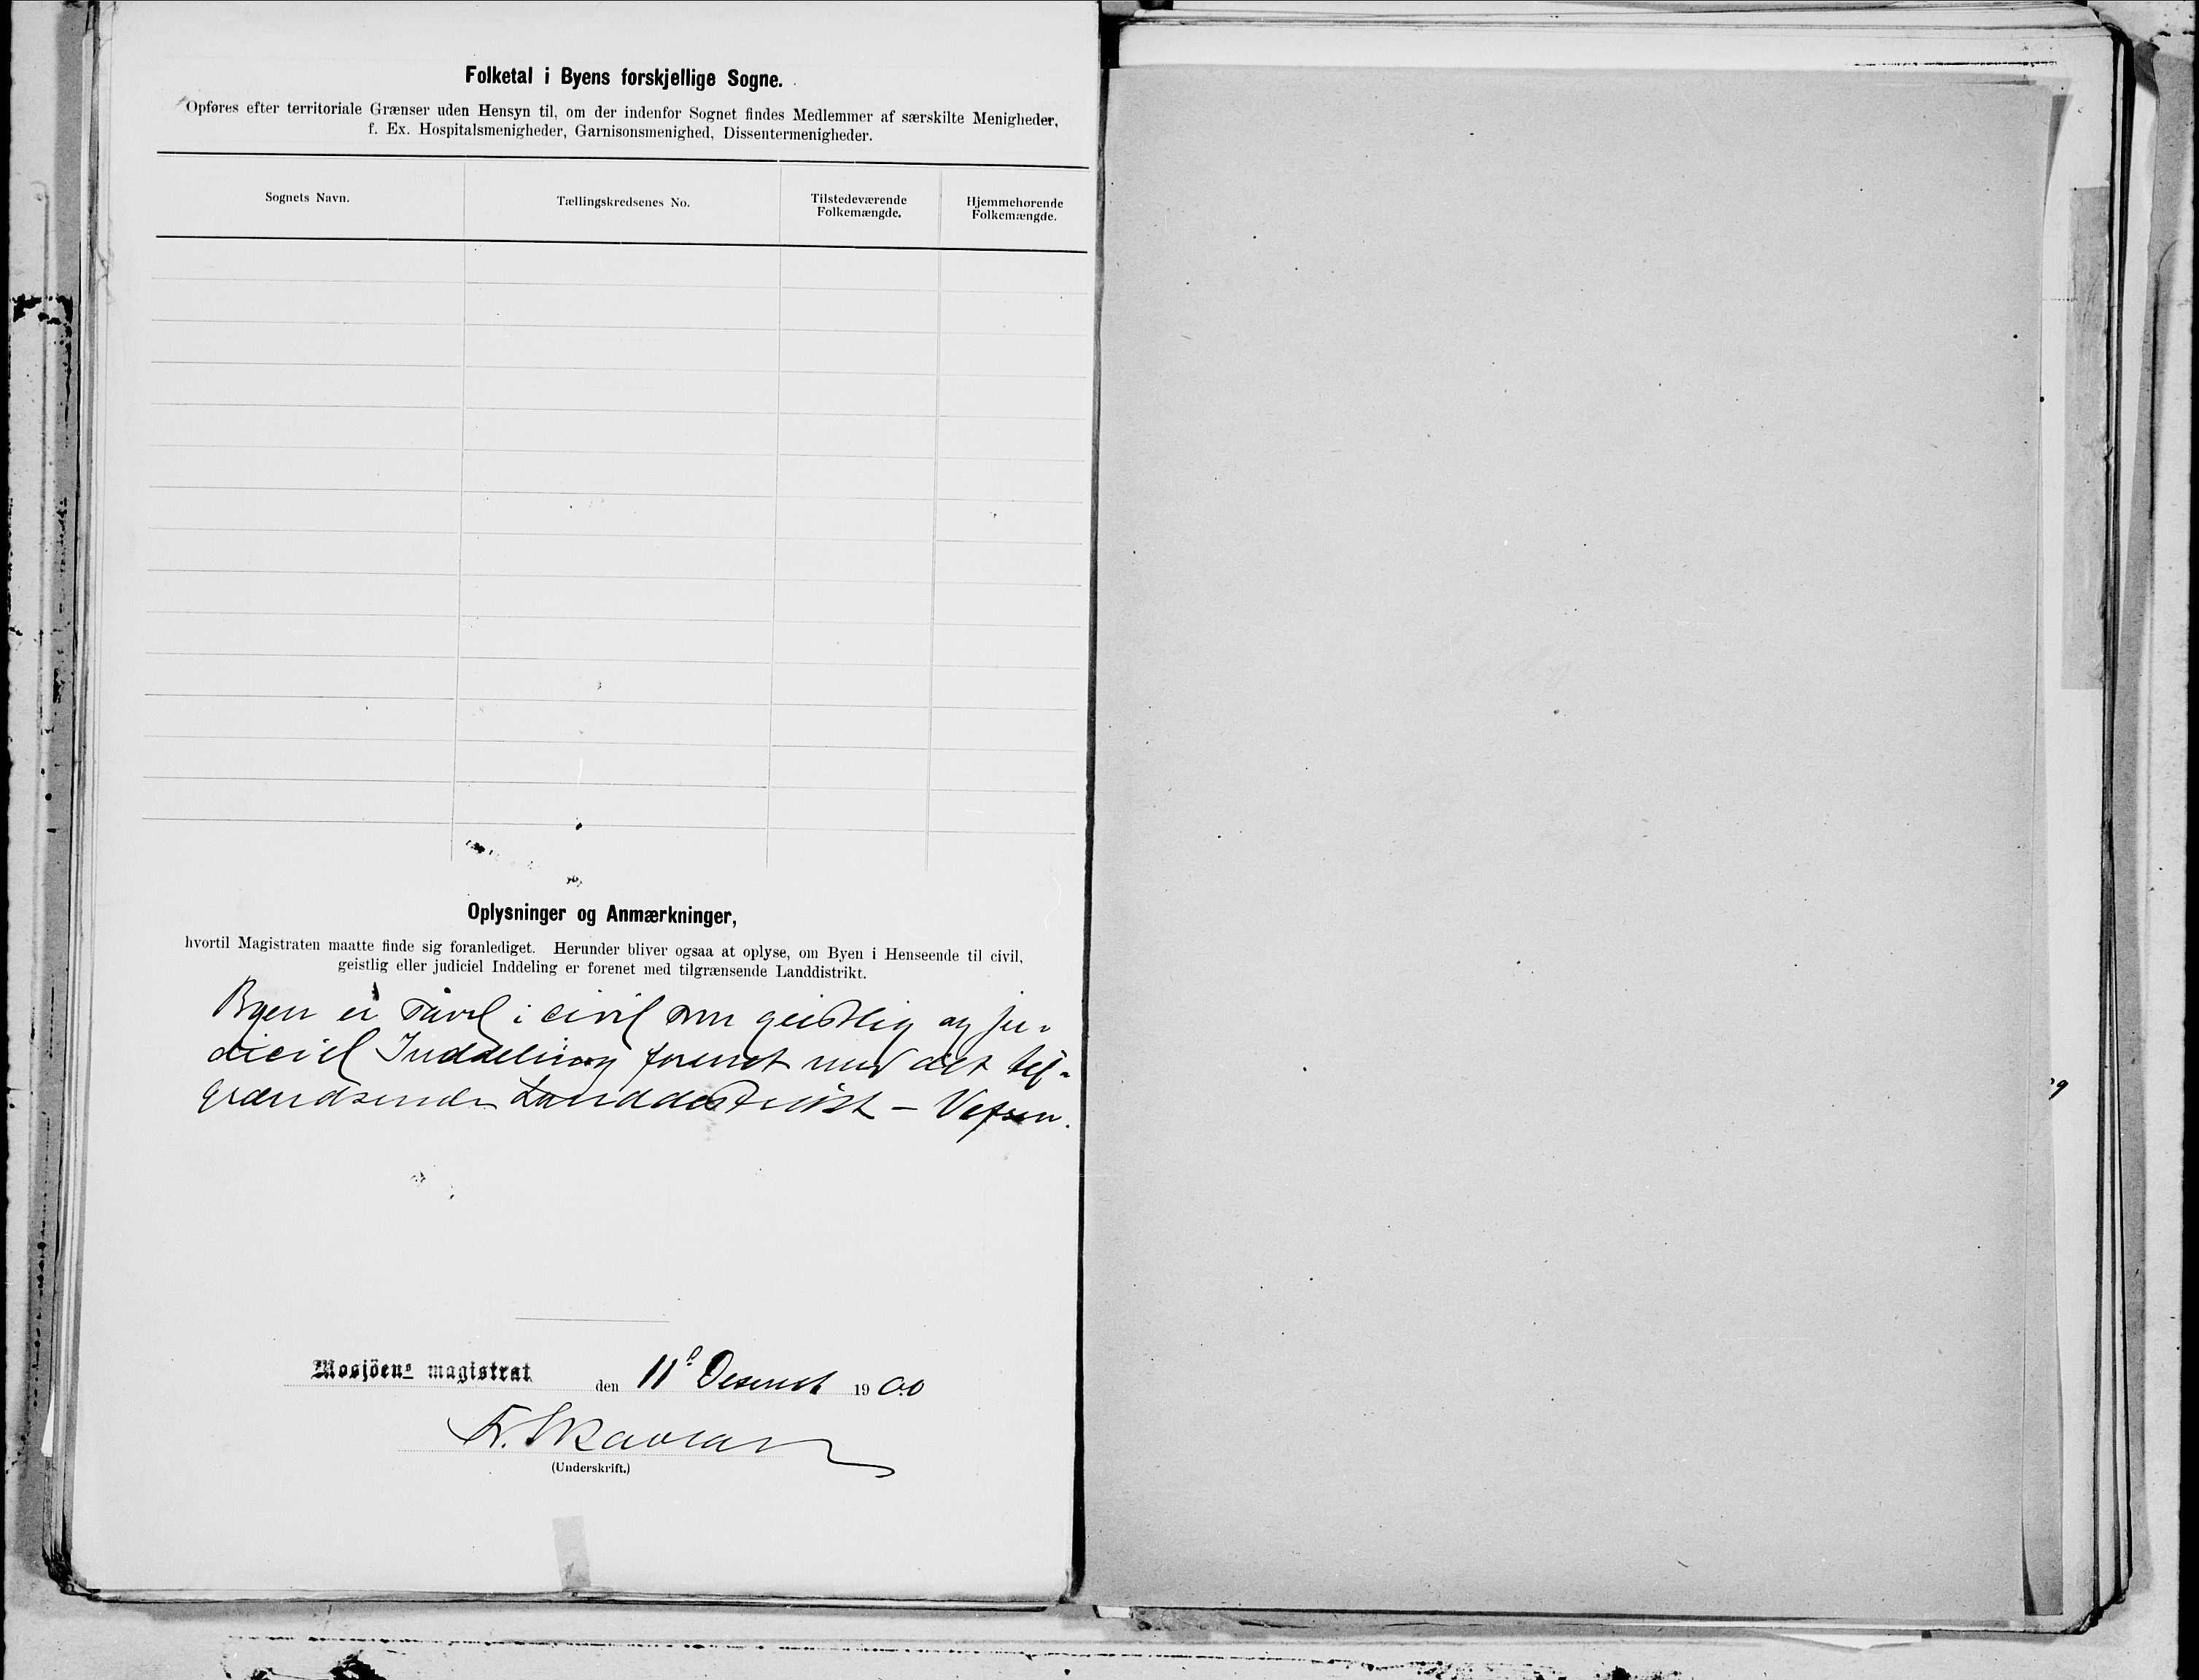 Folketal i Byens forskjellige Sogne.
Opføres efter territoriale Grænser uden Hensyn til, om der indenfor Sognet findes Medlemmer af særskilte Menigheder,
f. Ex. Hospitalsmenigheder, Garnisonsmenighed, Dissentermenigheder.
Sognets Navn.
Tællingskredsenes No.
Tilstedeværende
Folkemængde.
Hjemmehørende
Folkemængde.
Oplysninger og Anmærkninger,
hvortil Magistraten maatte finde sig foranlediget. Herunder bliver ogsaa at oplyse, om Byen i Henseende til civil,
geistlig eller judiciel Inddeling er forenet med tilgrænsende Landdistrikt.
Byen er såvel i civil som geistlig og ju-
diciel Inddeling forenet med det til-
grændsende Landdistrikt – Vefsen.
Mosjöens magistrat den 11 1900
(Underskrift.)